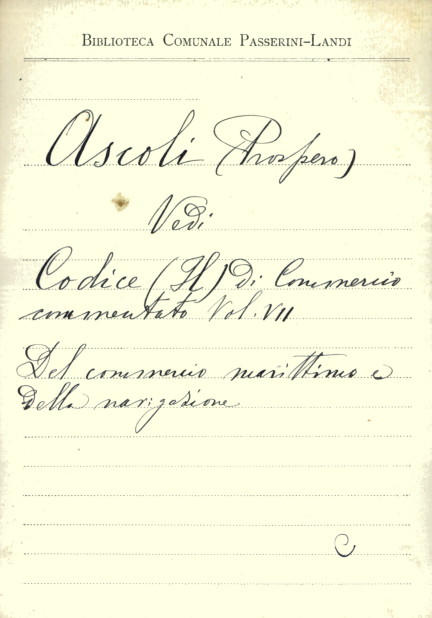 BIBLIOTECA COMUNALE PASSERINI-LANDI
Ascoli (Prospero)
Vedi
Codice (Il) di Commercio
commentato Vol. VII
Del commercio marittimo e
della navigazione
C